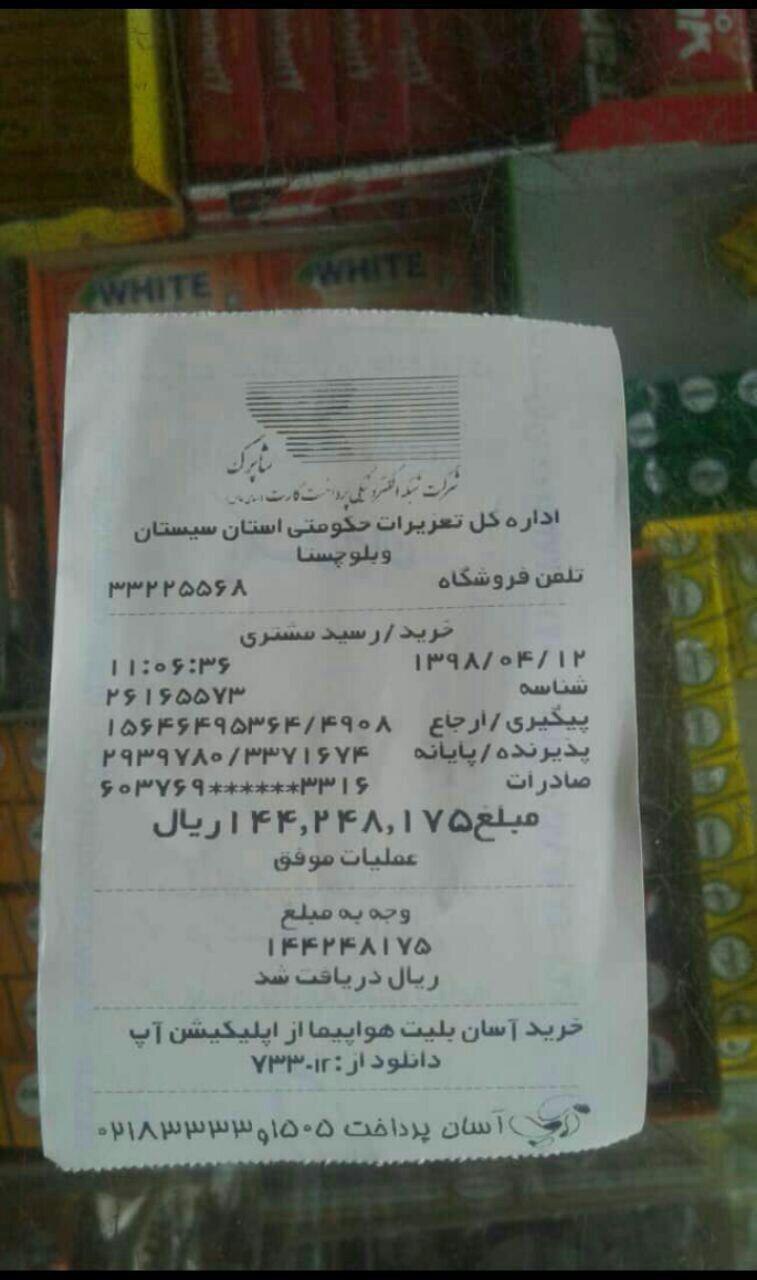 WHITE WHITE
شاپرک
شرکت شبکه الکترونیکی پرداخت کارت
اداره کل تعزیرات حکومتی استان سیستان
وبلوچستا
تلفن فروشگاه ۳۳۲۲۵۵۶۸
خرید/رسید مشتری
۱۳۹۸/۰۴/۱۲ ۱۱:۰۶:۳۶
شناسه ۲۶۱۶۵۵۷۳
پیگیری/ارجاع ۱۵۶۴۶۴۹۵۳۶۴/۴۹۰۸
پذیرنده/پایانه ۲۹۳۹۷۸۰/۳۳۷۱۶۷۴
صادرات ۶۰۳۷۶۹******۳۳۱۶
مبلغ۱۴۴,۲۴۸,۱۷۵ریال
عملیات موفق
وجه به مبلغ
۱۴۴۲۴۸۱۷۵
ریال دریافت شد
خرید آسان بلیت هواپیما از اپلیکیشن آپ
دانلود از:۷۳۳۰۱۲
آسان پرداخت ۱۵۰۵و۰۲۱۸۳۳۳۳